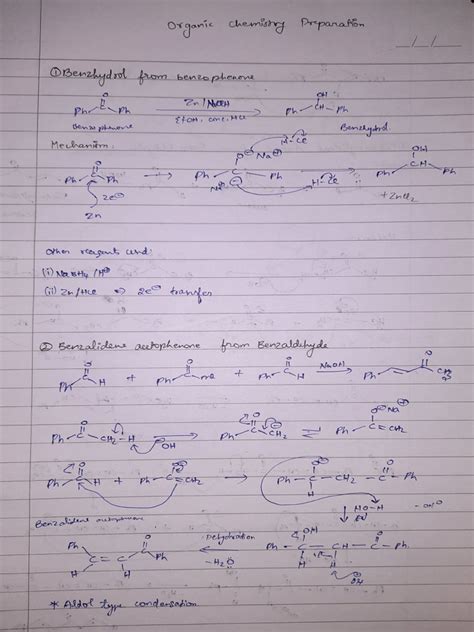 Organic Chemistry Preparation
_/_/_
① Benzhydrol from benzophenone
O
Ph C Ph
Zn/NaOH
EtOH, conc. HCl
OH
Ph CH Ph
Benzophenone
Benzhydrol
Mechanism.
Ph C Ph
2e⊖
Zn
Na⊕
H-Cl
Ph Ph
OH
Ph CH Ph
+ ZnCl2
Other reagents used:
(i) NaBH4/H⊕
(ii) Zn/HCl ⇒ 2e⊖ transfer
② Benzalidene acetophenone from Benzaldehyde
Ph H + Ph Me + Ph H
NaOH
Ph
Ph-C-CH2-H
⊖OH
Ph-C-CH2
O⊖ Na⊕
Ph-C=CH2
Ph-C-H + Ph-C=CH2
Ph-C-CH2-C-Ph
H
H-O-H
-OH⊖
Benzalidene acetophenone
Dehydration
-H2O
OH
Ph-C-CH-C-Ph
H H
* Aldol type condensation.